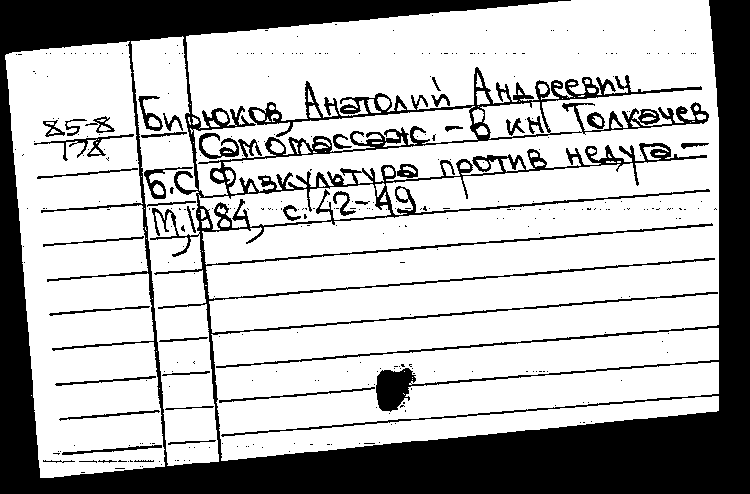 Бирюков, Анатолий Андреевич.
85-8
178
Самомассаж. – В кн: Толкачев
Б.С. Физкультура против недуга. –
М., 1984, с. 42-49.